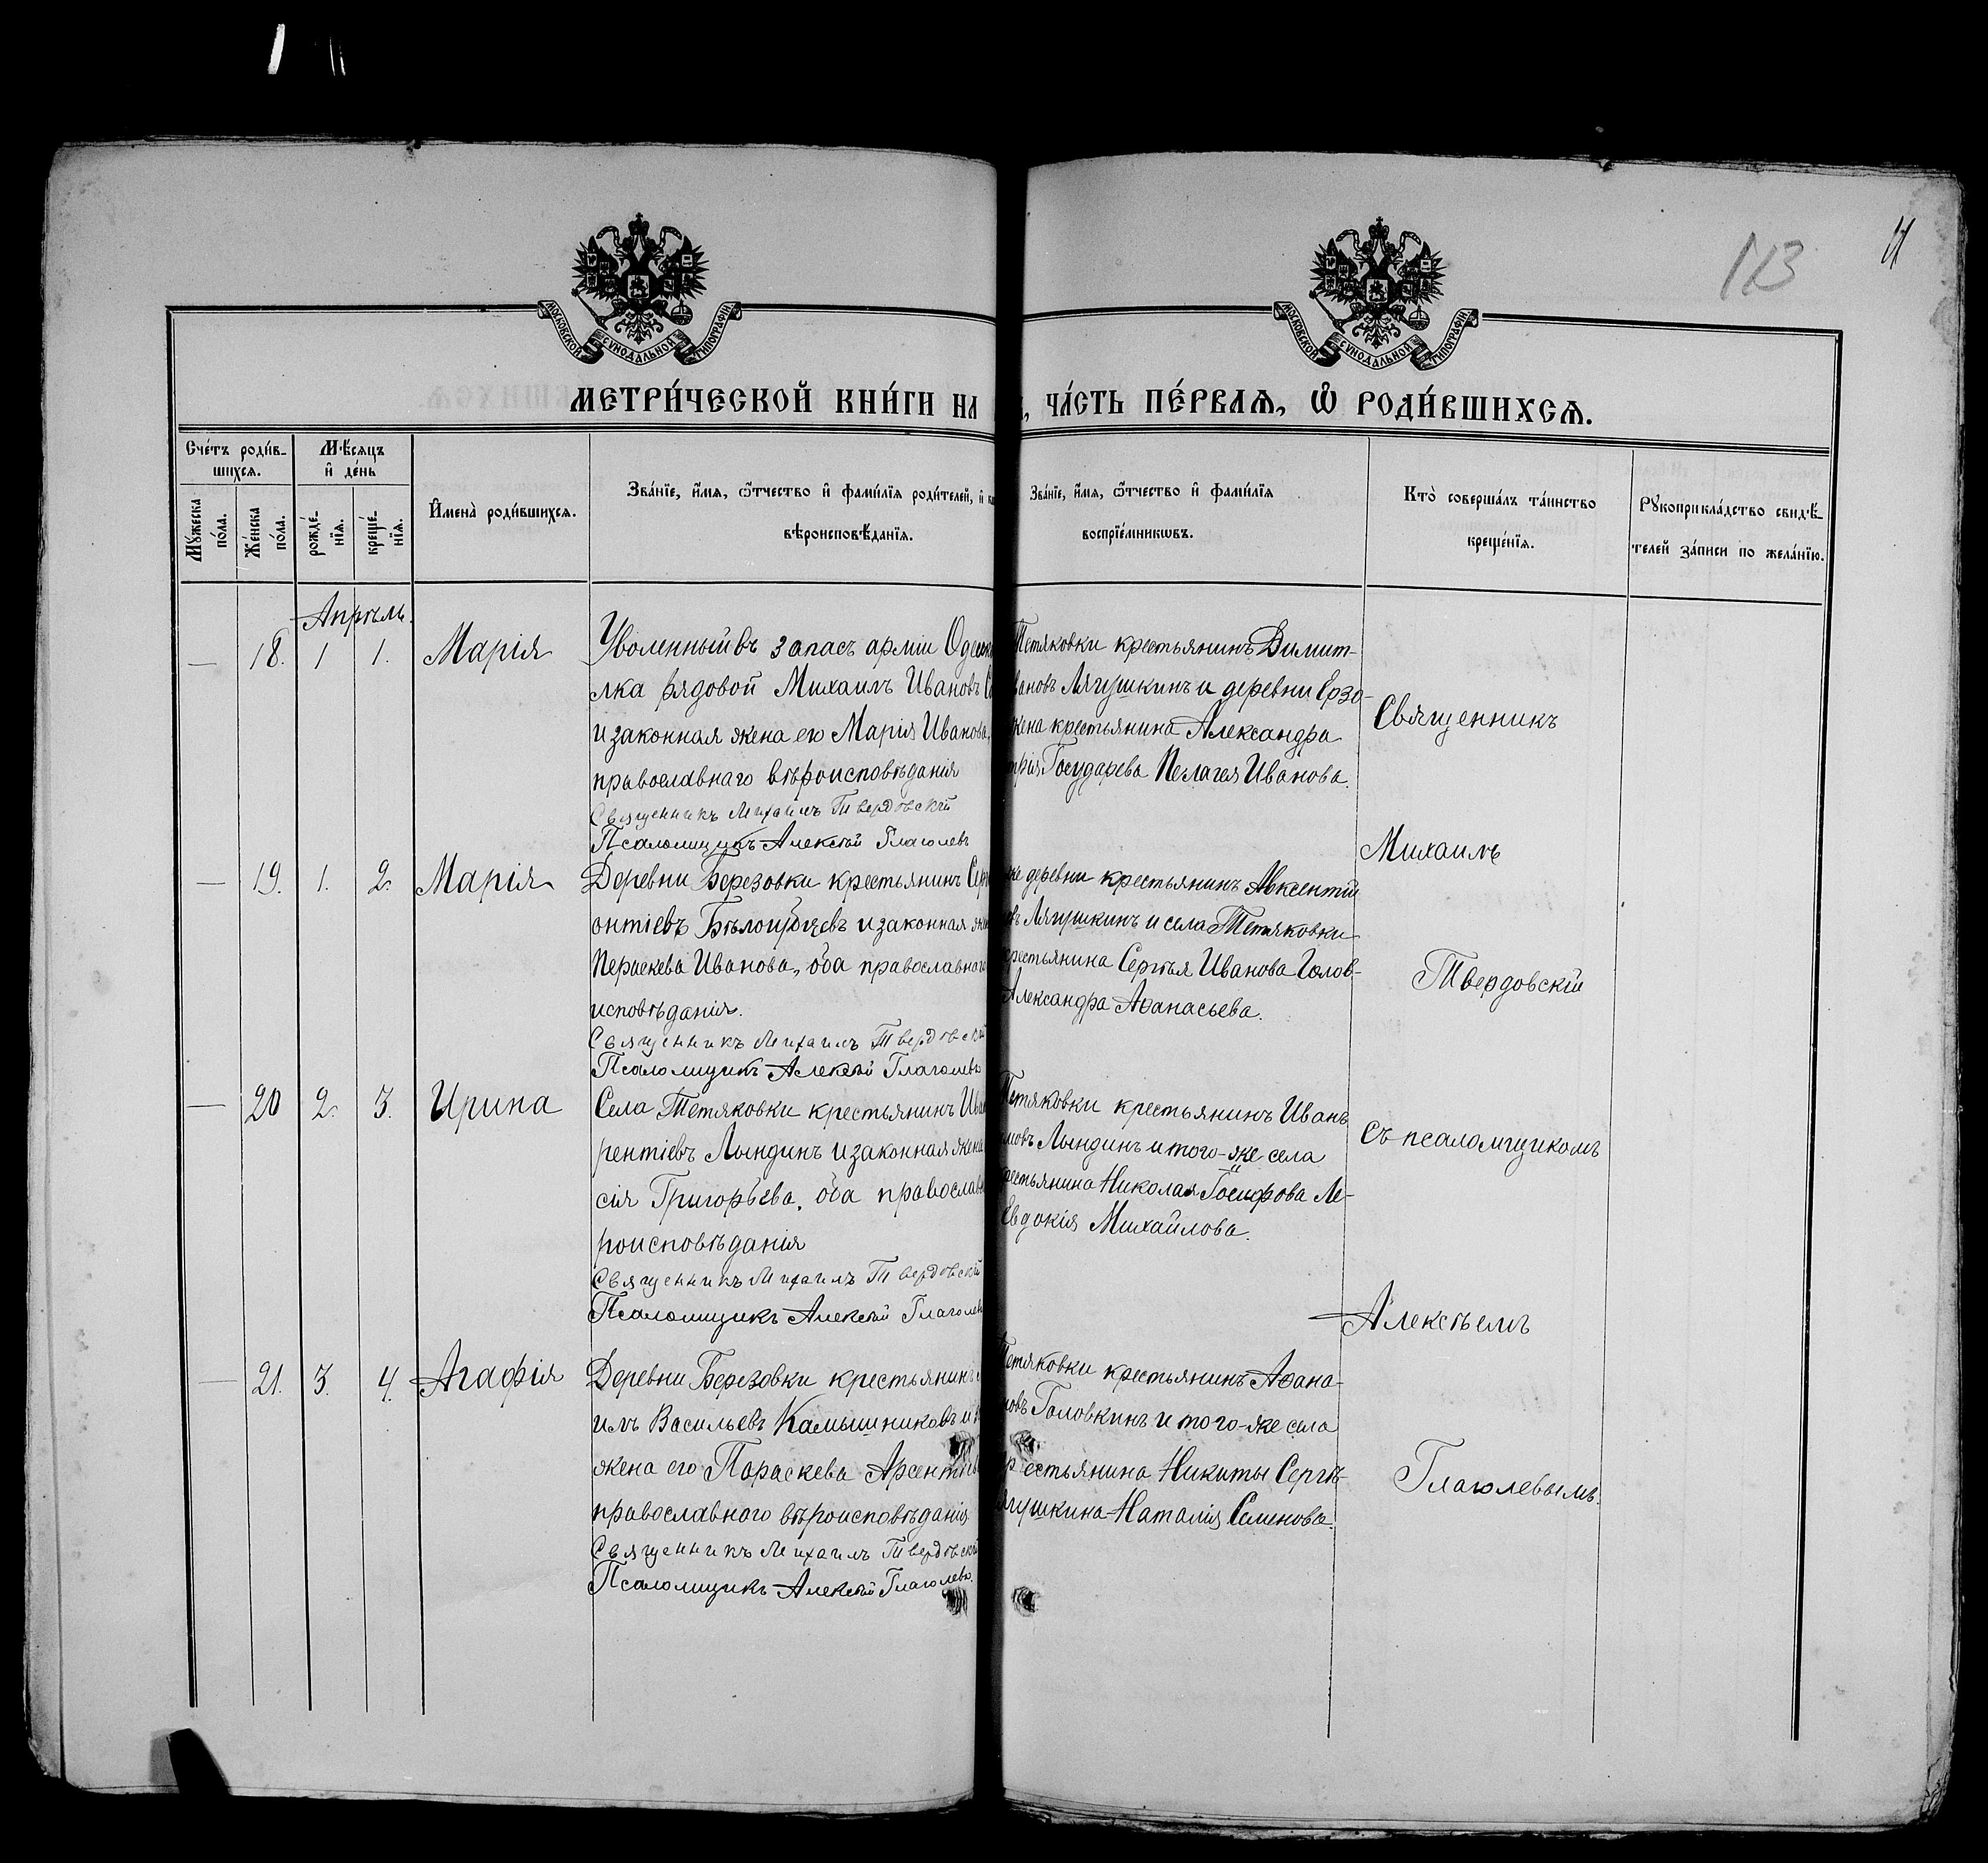 113
МОСКОВСКОЙ СѴНОДАЛЬНОЙ ТИПОГРАФІИ
МОСКОВСКОЙ СѴНОДАЛЬНОЙ ТИПОГРАФІИ
МЕТРИ́ЧЕСКОЙ КНИ́ГИ НА , ЧА́СТЬ ПЕ́РВАѦ, Ѡ҆ РОДИ́ВШИХСѦ.
Сче́тъ роди́в-
шихсѧ.
Мꙋ́жеска по́ла.
Же́нска по́ла.
Мѣ́сѧцъ
и҆ де́нь
рожде́-
нїѧ.
креще́-
нїѧ.
И҆мена̀ роди́вшихсѧ.
Зва́нїе, и҆́мѧ, ѻ҆́тчество и҆ фами́лїѧ роди́телей, и҆
вѣроисповѣ́данїѧ.
Зва́нїе, и҆́мѧ, ѻ҆́тчество и҆ фами́лїѧ
воспрїе́мникѡвъ.
Кто̀ соверша́лъ та́инство
креще́нїѧ.
Рꙋкоприкла́дство свидѣ́-
телей за́писи по жела́нїю.
Апрѣль.
— 18. 1 1. Марія
Уволенный въ запасъ арміи
лка рядовой Михаилъ Ивановъ
и законная жена его Марія Иванова,
православнаго вѣроисповѣданія
Священникъ Михаилъ Твердовскій
Псаломщикъ Алексѣй Глаголевъ
Тетяковки крестьянинъ Димит-
вановъ Лягушкинъ и деревни Ерзо-
жена крестьянина Александра
Государева Пелагея Иванова.
— 19. 1. 2. Марія
Деревни Березовки крестьянинъ
онтіевъ и законная
Параскева Иванова, оба православнаго
исповѣданія.
Священникъ Михаилъ Твердовскій
Псаломщикъ Алексѣй Глаголевъ
же деревни крестьянинъ Авксентій
въ Лягушкинъ и села Тетяковки
крестьянина Сергѣя Иванова Голов-
Александра Аѳанасьева.
— 20 2. 3. Ирина
Села Тетяковки крестьянинъ
рентіевъ Лындинъ и законная жена
сія Григорьева, оба
роисповѣданія
Священникъ Михаилъ Твердовскій
Псаломщикъ Алексѣй Глаголевъ
Тетяковки крестьянинъ Иванъ
мовъ Лындинъ и того-же села
крестьянина Николая Іосифова Ле-
Евдокія Михайлова.
— 21. 3. 4. Агафія
Деревни Березовки крестьянинъ
имъ Васильевъ Камышниковъ и
жена его Параскева
православнаго вѣроисповѣданія
Священникъ Михаилъ Твердовскій
Псаломщикъ Алексѣй Глаголевъ.
Тетяковки крестьянинъ Аѳана-
новъ Головкинъ и того-же села
крестьянина Никиты Сергѣ-
ягушкина Наталія Семенова.
Священникъ
Михаилъ
Твердовскій
съ псаломщикомъ
Алексѣемъ
Глаголевымъ.